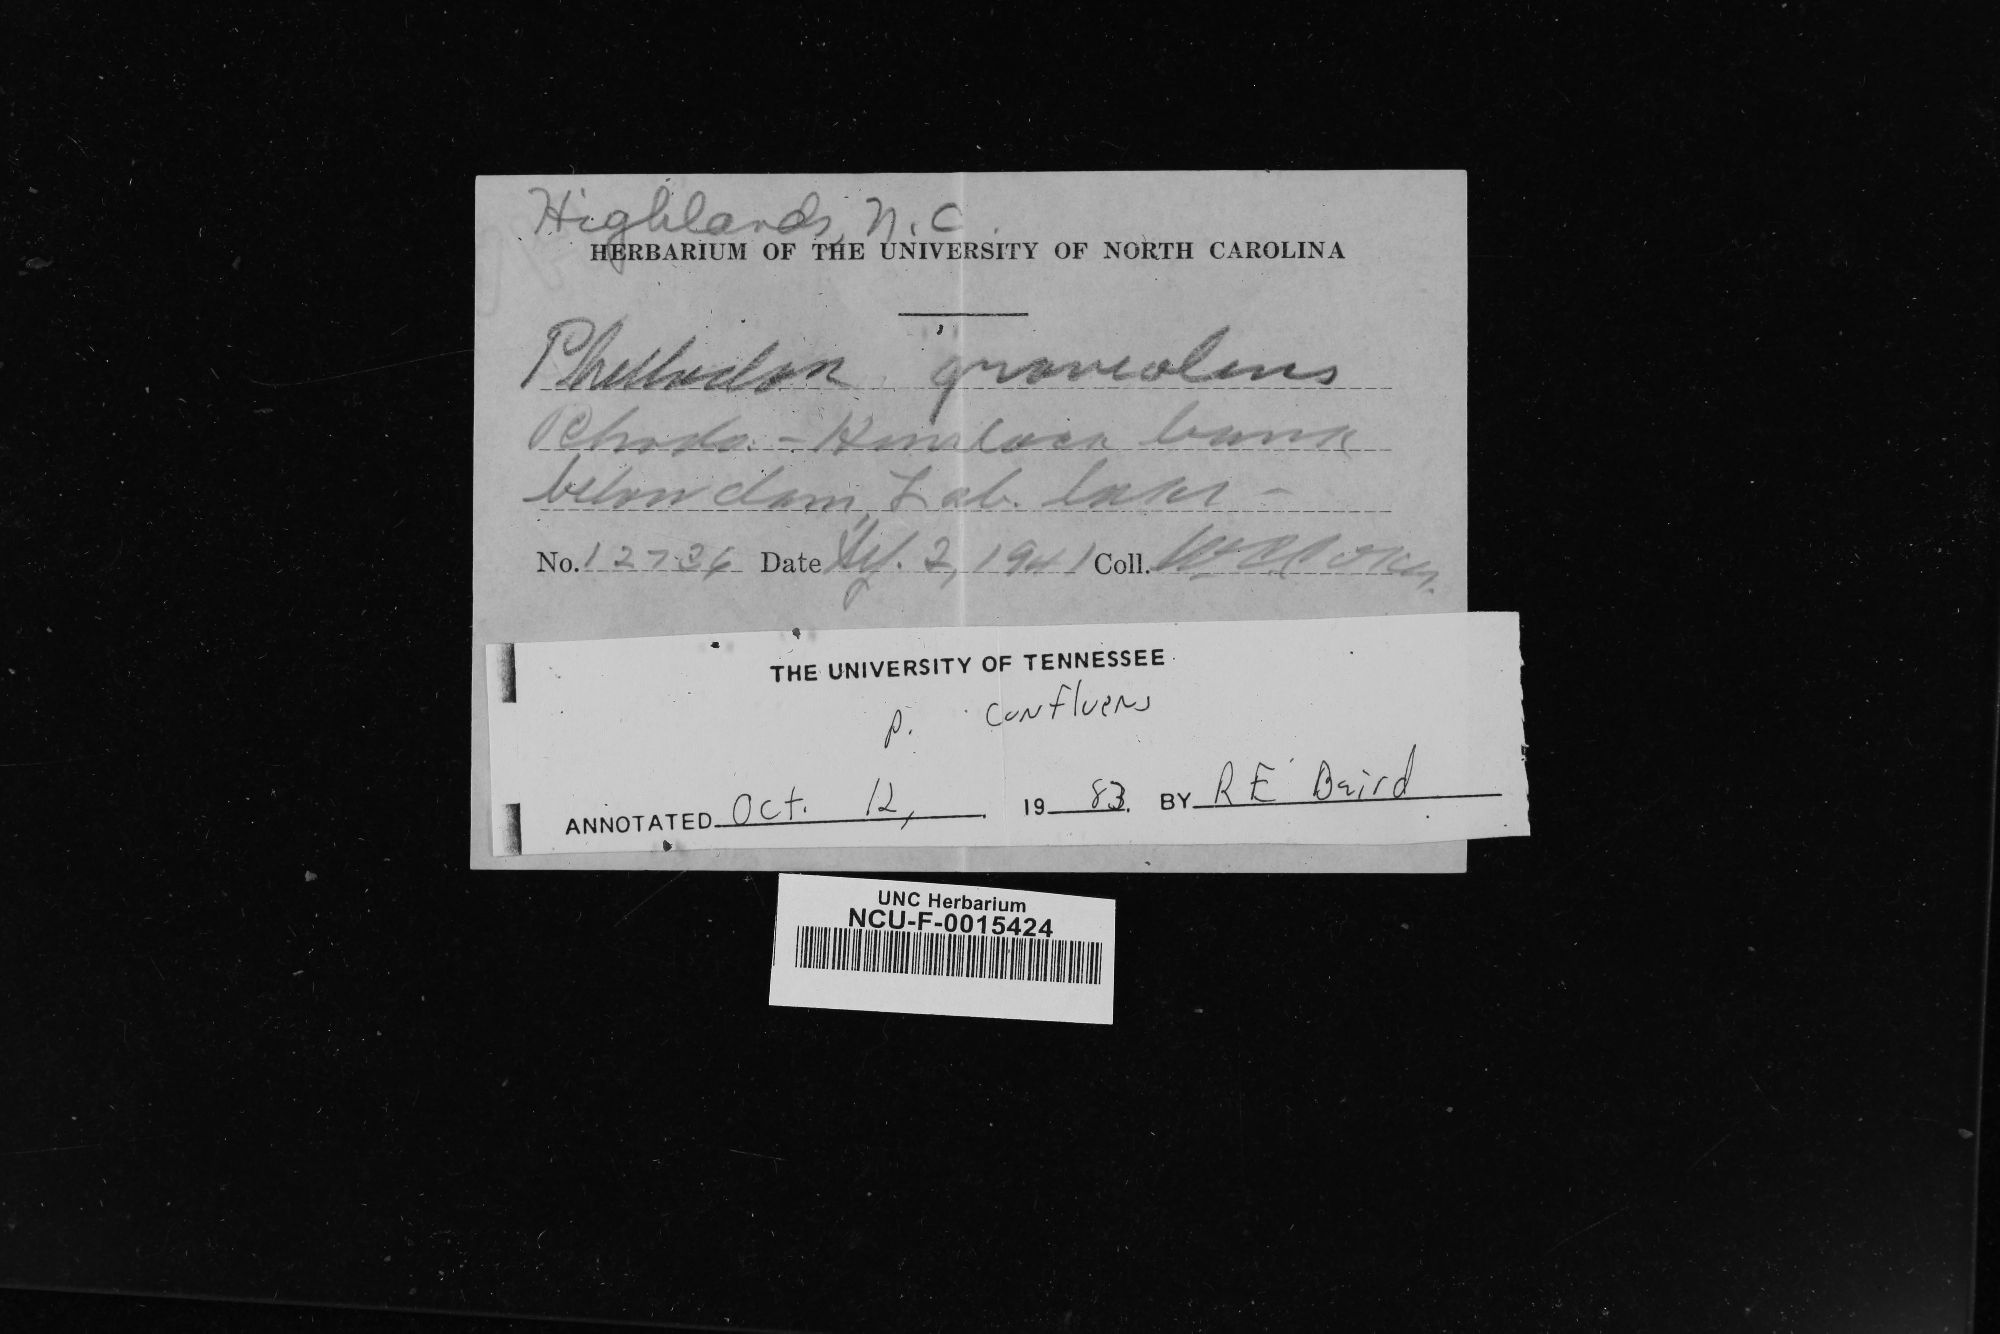 Highlands, N.C.
HERBARIUM OF THE UNIVERSITY OF NORTH CAROLINA
Phellodon graveolens
Rhodo. - Hemlock bank
below dam, Lab. lake -
No. 12736 Date 2, 1941 Coll. W.C. Coker.
THE UNIVERSITY OF TENNESSEE
P. confluens
ANNOTATED Oct. 12, 19 83. BY R E Baird
UNC Herbarium
NCU-F-0015424